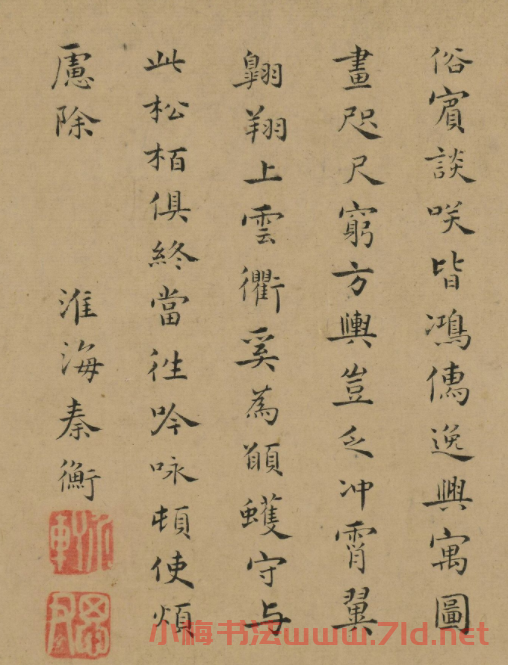 俗賓談咲皆鴻儒逸興寓圖
畫咫尺窮方輿豈乏冲霄翼
翺翔上雲衢奚為蠖守与
此松栢俱終當徃吟咏頓使煩
慮除 淮海秦衡
小梅书法www.7ld.net